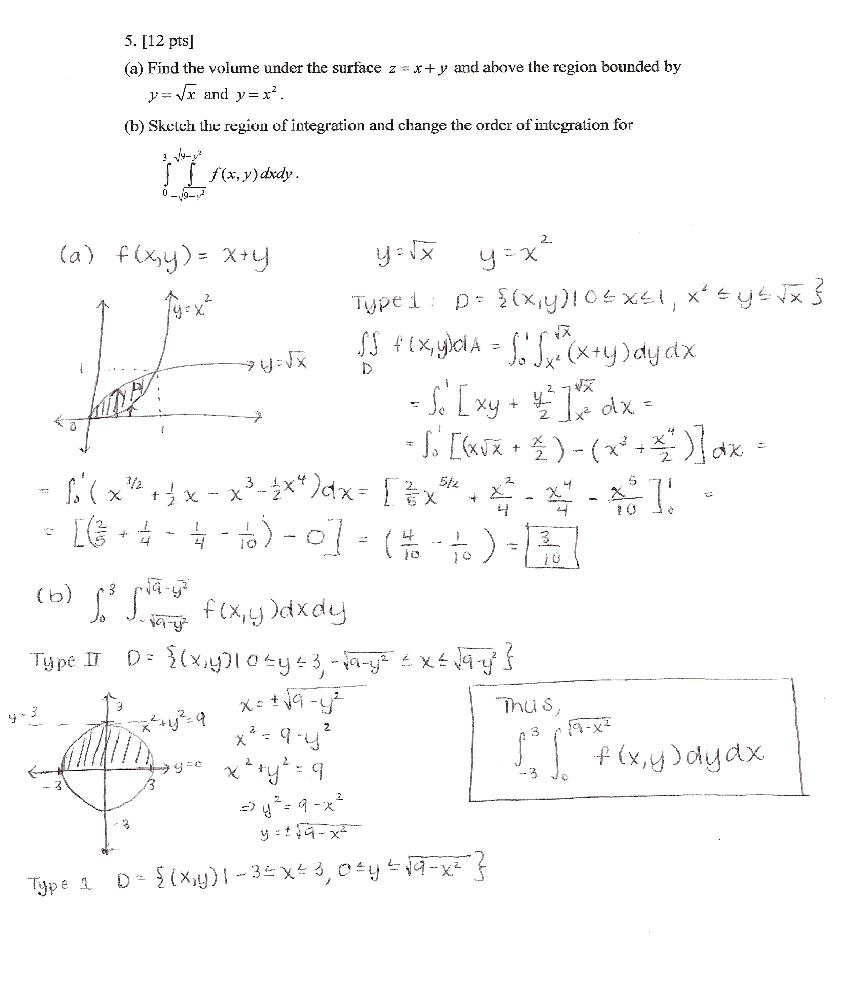 5. [12 pts]
(a) Find the volume under the surface z = x + y and above the region bounded by
y = √x and y = x².
(b) Sketch the region of integration and change the order of integration for
∫₀³ ∫_{-√(9-y²)}^{√(9-y²)} f(x, y) dxdy.
(a) f(x,y) = x+y y=√x y=x²
y=x²
Type 1 : D = {(x,y)| 0≤x≤1, x² ≤ y ≤ √x}
1 D → y=√x
∬_D f(x,y)dA = ∫₀¹ ∫_{x²}^{√x} (x+y)dydx
0 1
= ∫₀¹ [xy + y²/2]_{x²}^{√x} dx =
= ∫₀¹ [(x√x + x/2) - (x³ + x⁴/2)] dx =
= ∫₀¹ (x^{3/2} + ½x - x³ - ½x⁴)dx = [⅖x^{5/2} + x²/4 - x⁴/4 - x⁵/10]₀¹ =
= [(2/5 + 1/4 - 1/4 - 1/10) - 0] = (4/10 - 1/10) = 3/10
(b) ∫₀³ ∫_{-√(9-y²)}^{√(9-y²)} f(x,y)dxdy
Type II D = {(x,y)| 0≤y≤3, -√(9-y²) ≤ x ≤ √(9-y²)}
y=3 3 x²+y²=9
-3 3 y=0
-3
x = ±√(9-y²)
x² = 9-y²
x²+y² = 9
⇒ y² = 9-x²
y = ±√(9-x²)
Thus,
∫_{-3}^{3} ∫₀^{√(9-x²)} f(x,y)dydx
Type 1 D = {(x,y)| -3≤x≤3, 0≤y≤√(9-x²)}